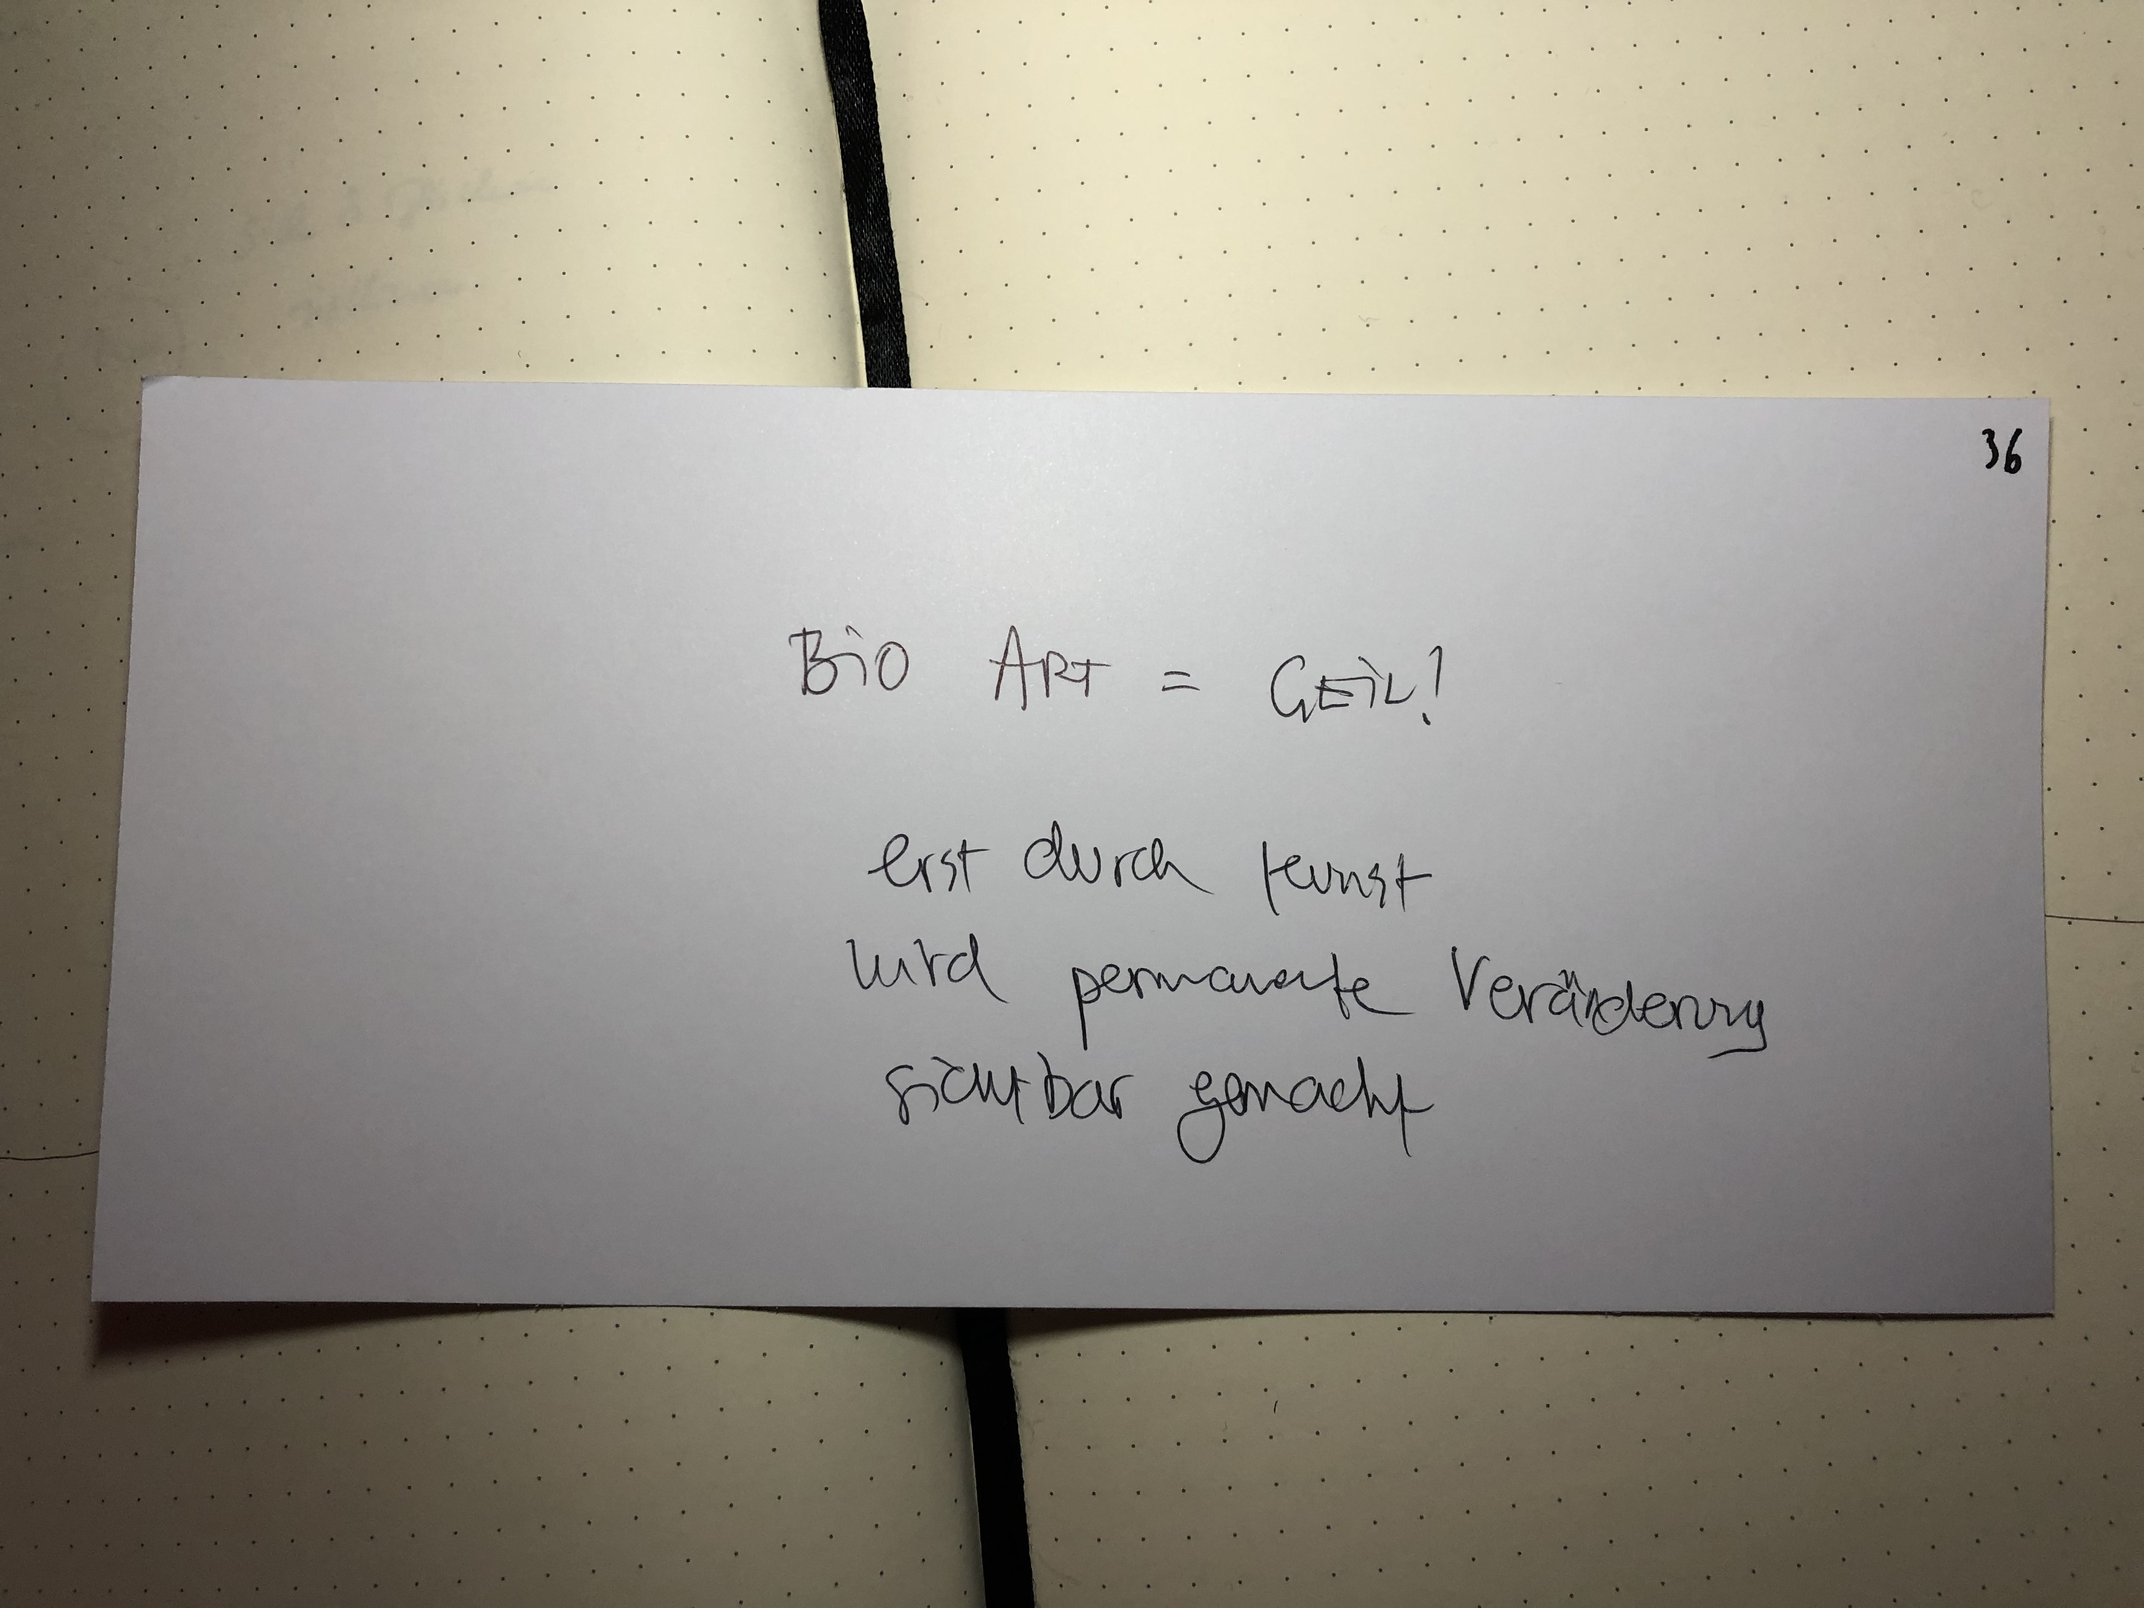 36
BiO ART = GEiL!
erst durch kunst
wird permanente Veränderung
sichtbar gemacht